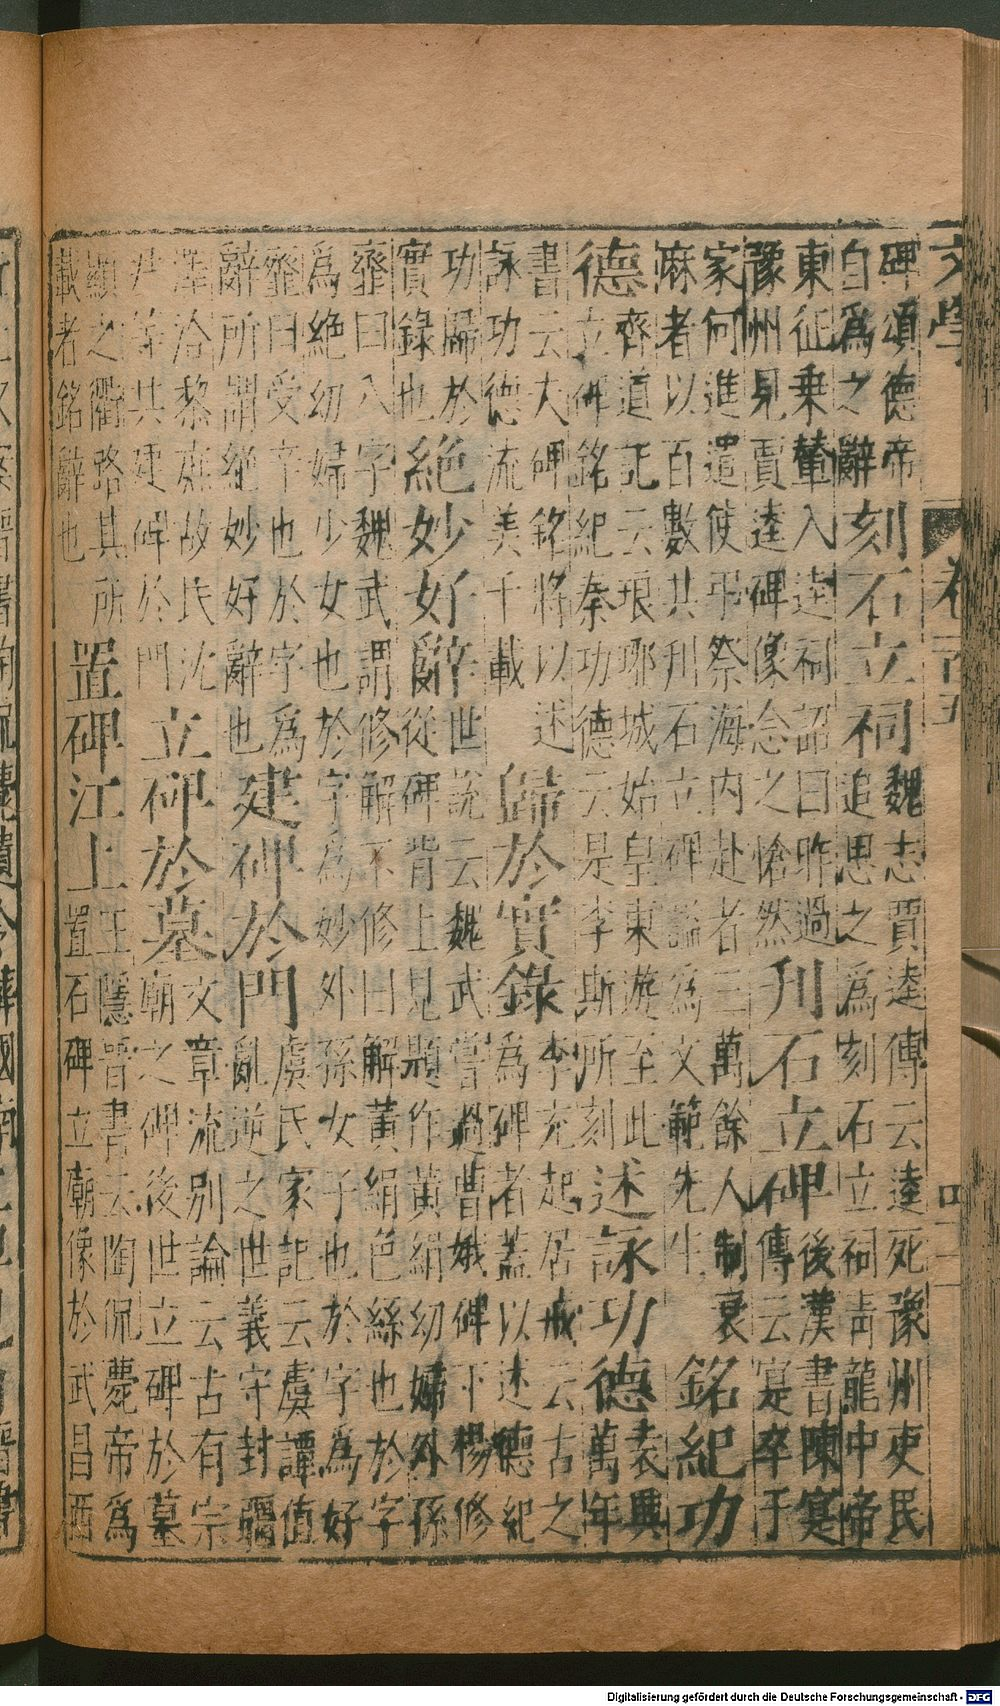 文學
碑頌德帝
自爲之辭
刻石立祠
魏志賈逵傳云逵死豫州吏民
追思之爲刻石立祠青龍中帝
東征乗輦入逵祠詔曰昨過
豫州見賈逵碑像念之愴然
刋石立碑
後漢書陳寔
傳云寔卒于
家何進遣使弔祭海内赴者三萬餘人制衰
麻者以百數共刋石立碑謚爲文範先生
銘紀功
德
齊道記云琅琊城始皇東遊至此
立碑銘紀秦功德云是李斯所刻
述詠功德
袁興
萬年
書云大碑銘將以述
詠功德流美千載
歸於實錄
李充起居戒云古之
爲碑者蓋以述德紀
功歸於
實錄也
絶妙好辭
世說云魏武嘗過曹娥碑下楊修
從碑背上見題作黃絹幼婦外孫
虀曰八字魏武謂修解不修曰解黃絹色絲也於字
爲絶幼婦少女也於字爲妙外孫女子也於字爲好
虀曰受辛也於字爲
辭所謂絶妙好辭也
建碑於門
虞氏家記云虞譚值
亂逆之世義守封疆
澤洽黎庶故民沈
尹等共建碑於門
立碑於墓
文章流別論云古有宗
廟之碑後世立碑於墓
顯之衢路其所
載者銘辭也
置碑江上
王隱晉書云陶侃薨帝爲
置石碑立廟像於武昌西
Digitalisierung gefördert durch die Deutsche Forschungsgemeinschaft - DFG